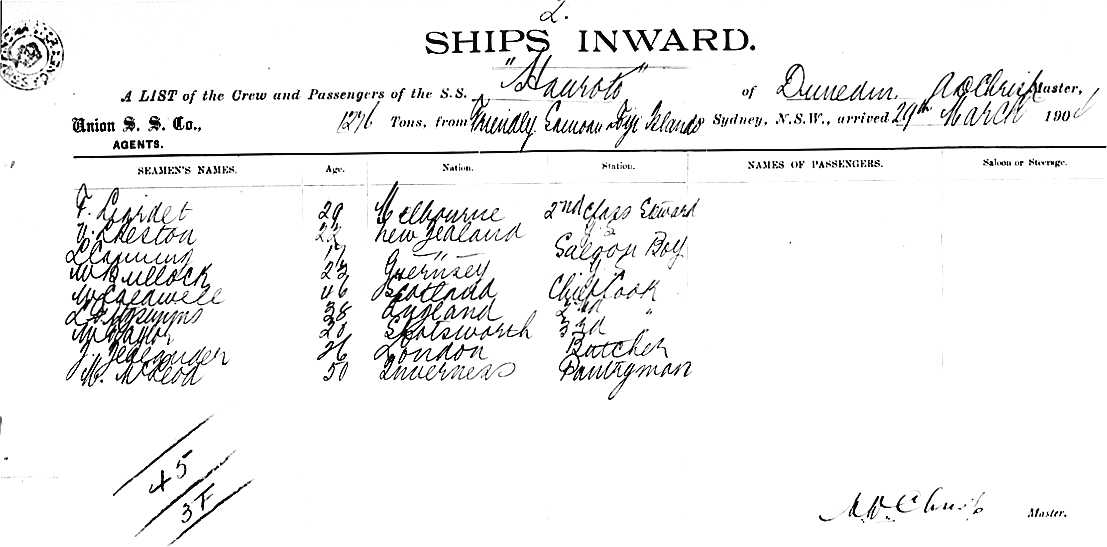 2.
SHIPS INWARD.
A LIST of the Crew and Passengers of the S.S. "Hauroto" of Dunedin Master,
Union S. S. Co., 1276 Tons, from Friendly Samoan Fiji Islands Sydney, N.S.W., arrived 29th March 190
AGENTS.
SEAMEN'S NAMES. Age. Nation. Station. NAMES OF PASSENGERS. Saloon or Steerage.
F. Liardet 29 Melbourne 2nd Class Steward
22 New Zealand
Saloon Boy
W Bullock 23 Guernsey
W Caldwell 46 Scotland Chief Cook
38 England 2nd "
20 3rd
26 London Butcher
M. McLeod 50 Inverness Pantryman
45
3F
Master.